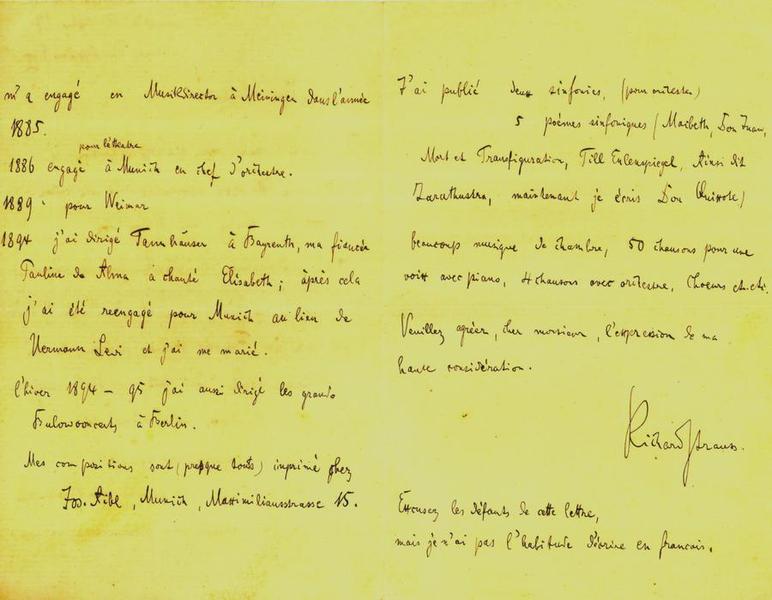 m'a engagé en Musikdirector à Meiningen dans l'année
1885.
pour l'théatre
1886 engagé à Munich en chef d'orchestre.
1889 - pour Weimar
1894 j'ai dirigé Tannhäuser à Bayreuth, ma fiancée
Pauline de Ahna à chanté Elisabeth; àprès cela
j'ai été reengagé pour Munich au lieu de
Hermann Levi et j'ai me marié.
l'hiver 1894 – 95 j'ai aussi dirigé les grands
Bulowconcerts à Berlin.
Mes compositions sont (presque touts) imprimé chez
Jos. Aibl, Munich, Maximiliansstrasse 15.
J'ai publié deux sinfonies, (pour orchestre)
5 poèmes sinfoniques (Macbeth, Don Juan,
Mort et Transfiguration, Till Eulenspiegel, Ainsi dit
Zarathustra, maintenant je écris Don Quixote)
beaucoup musique de chambre, 50 chansons pour une
voix avec piano, 4 chansons avec orchestre, Choeurs etc. etc.
Veuillez agréer, cher monsieur, l'expression de ma
haute considération.
Richard Strauss.
Excusez les défauts de cette lettre,
mais je n'ai pas l'habitude d'écrire en francais.